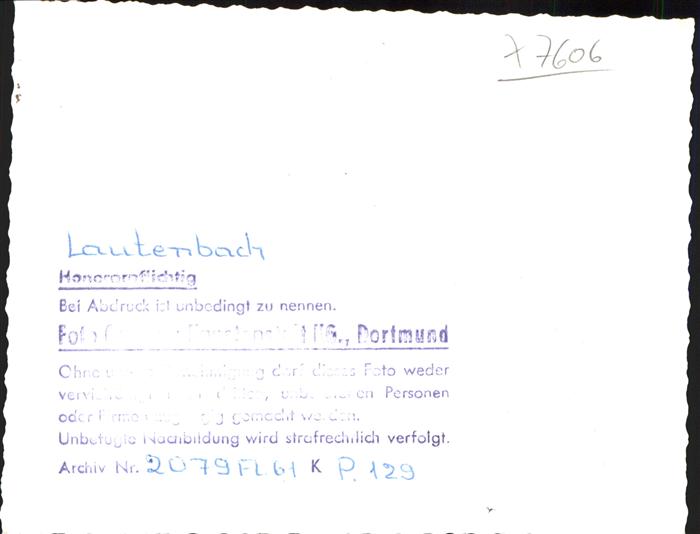 7606
Lautenbach
Honorarpflichtig
Bei Abdruck ist unbedingt zu nennen.
Foto Dortmund
Ohne dieses Foto weder
Personen
oder gemacht werden.
Unbefugte Nachbildung wird strafrechtlich verfolgt.
Archiv Nr. 2079 FL 61 K P. 129